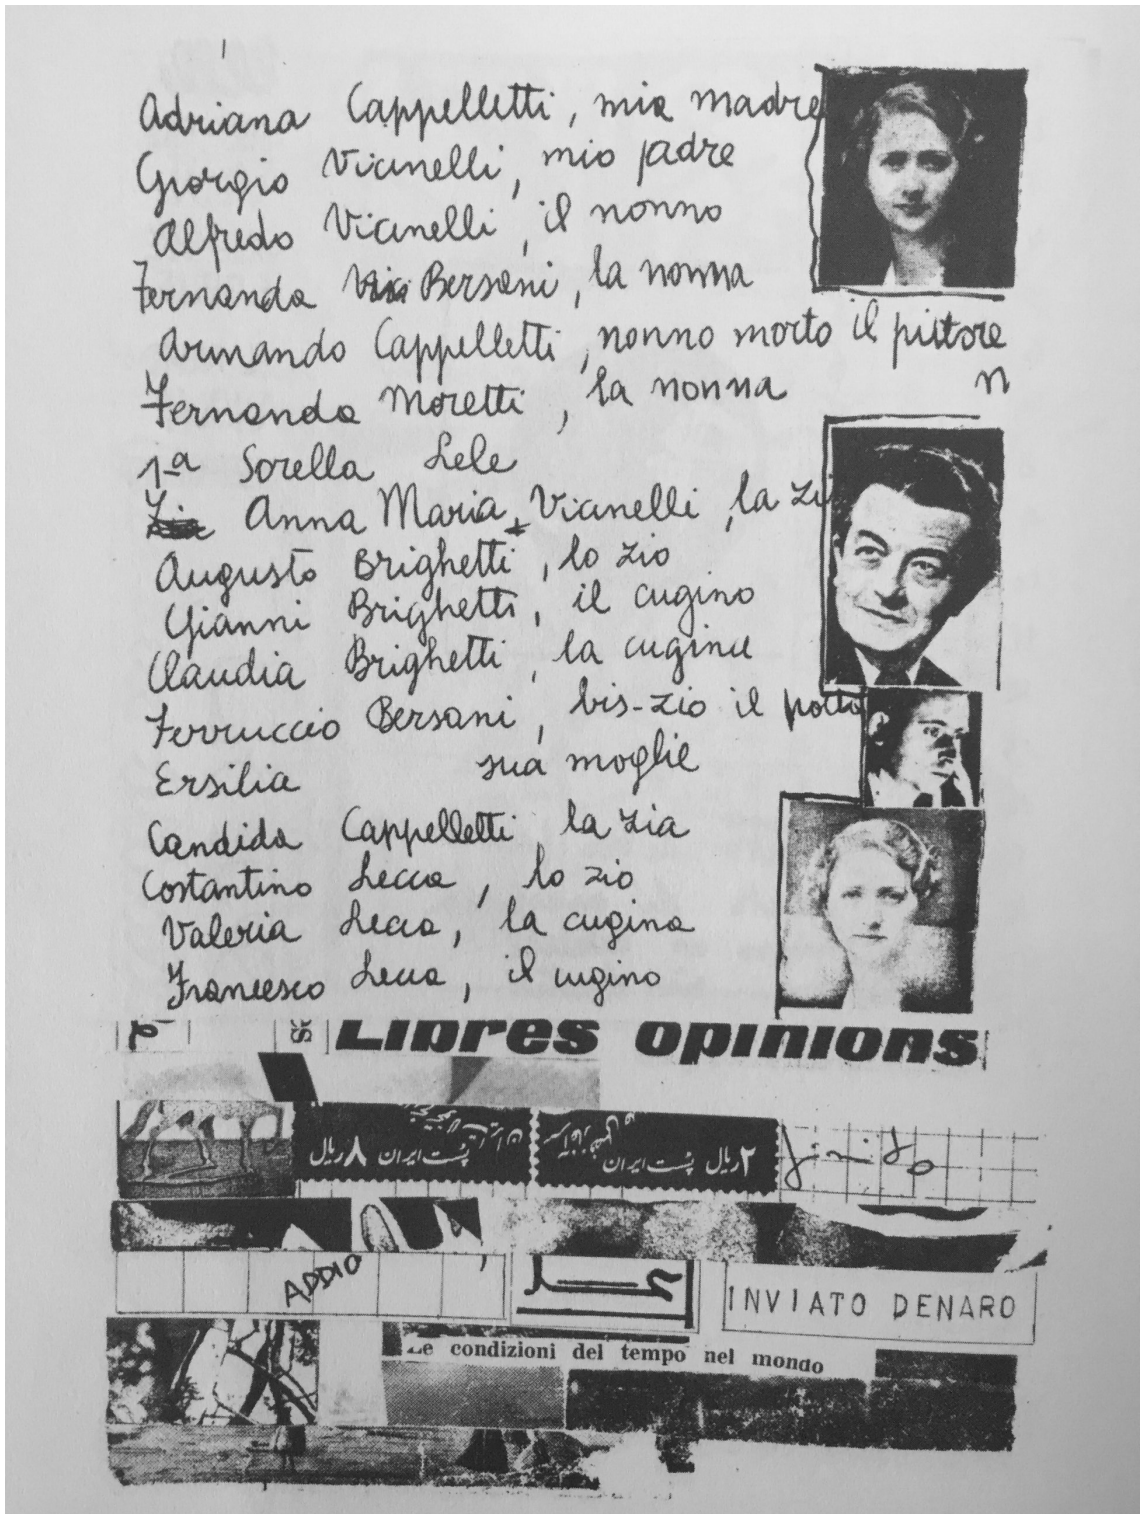 Adriana Cappelletti, mia madre
Giorgio Vicinelli, mio padre
Alfredo Vicinelli, il nonno
Fernanda Bersani, la nonna
Armando Cappelletti, nonno morto il pittore
n
Fernanda Moretti, la nonna
1ª Sorella Lele
Zia Anna Maria Vicinelli, la zi
Augusto Brighetti, lo zio
Gianni Brighetti, il cugino
Claudia Brighetti, la cugina
Ferruccio Bersani, bis-zio il
Ersilia sua moglie
Candida Cappelletti la zia
Costantino Lecca, lo zio
Valeria Lecca, la cugina
Francesco Lecca, il cugino
Libres opinions
پست ایران ۸ ریال
پست ایران ۲ ریال
ADDIO
INVIATO DENARO
Le condizioni del tempo nel mondo